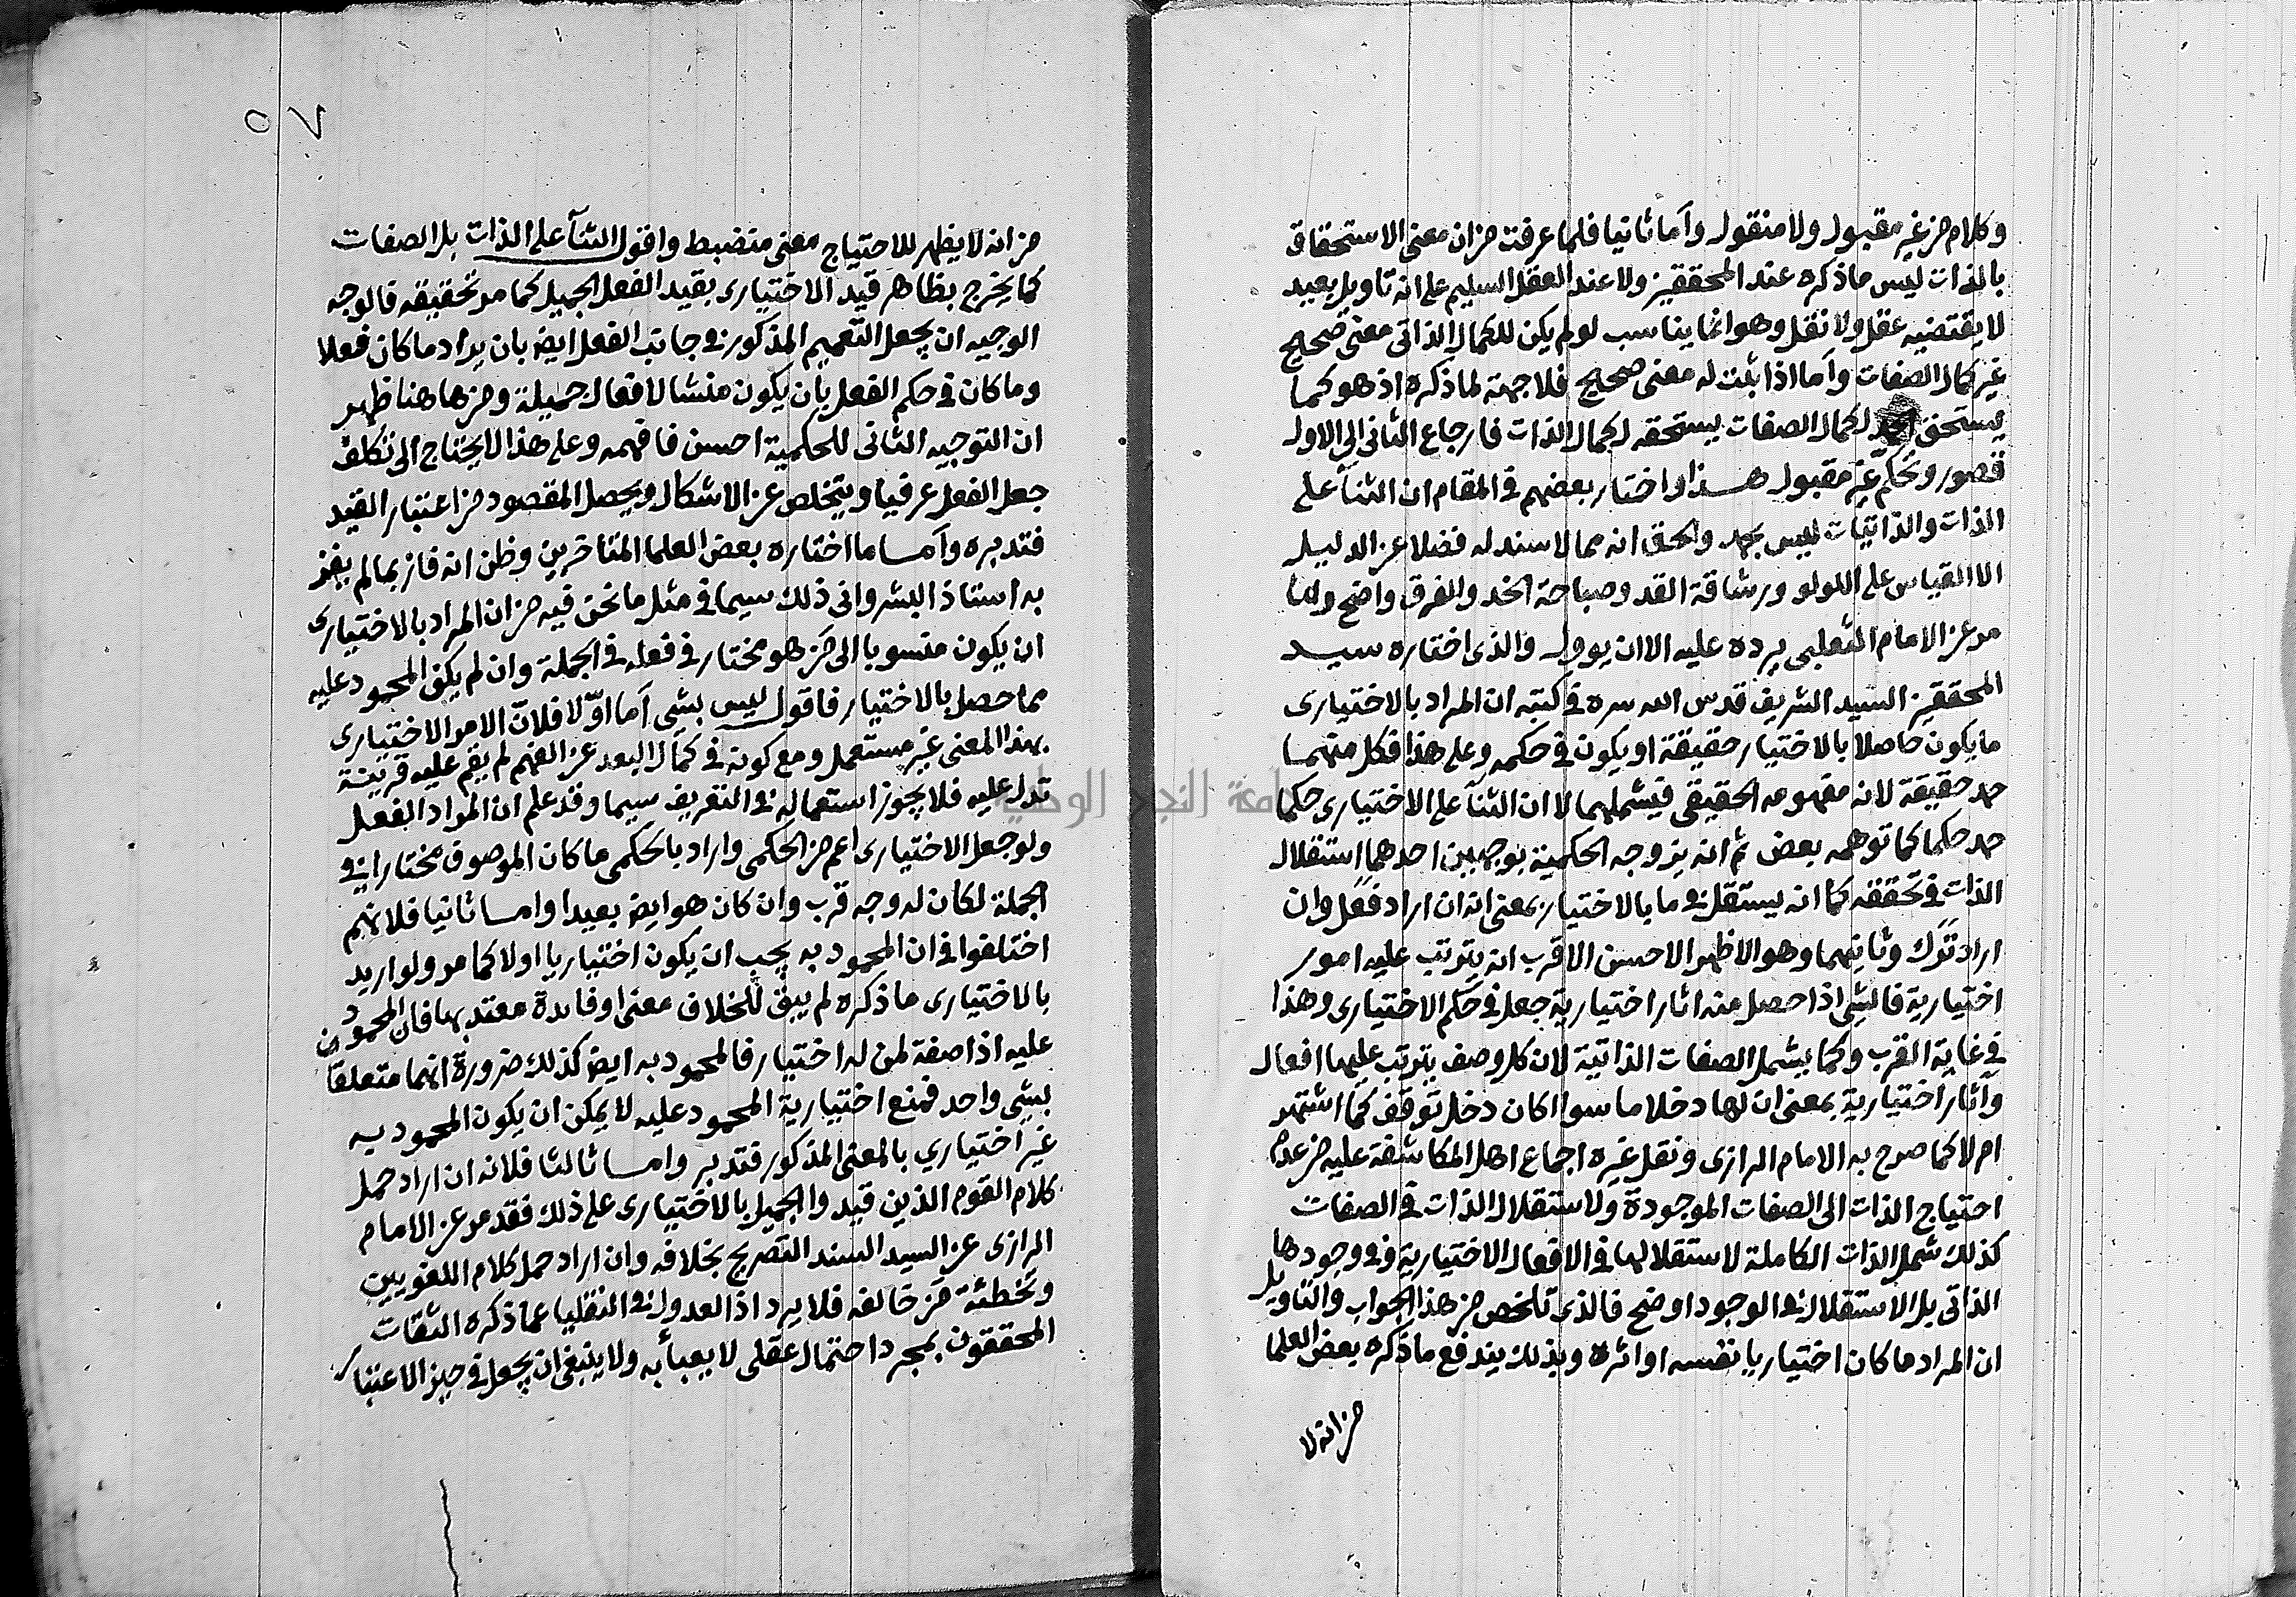 وكلام من غير مقبول ولا منقول وأما ثانيا فلما عرفت من ان معنى الاستحقاق
بالذات ليس ما ذكره عند المحققين ولا عند العقل السليم على انه تاويل بعيد
لا يقتضيه عقل ولا نقل وهو انما يناسب لو لم يكن للكمال الذاتى معنى صحيح
غير كمال الصفات وأما اذا ثبت له معنى صحيح فلا جهة لما ذكره اذ هو كما
يستحق الحمد لكمال الصفات يستحقه لكمال الذات فارجاع الثانى الى الاول
قصور وتحكم غير مقبول هذا واختار بعضهم فى المقام ان الثنأ على
الذات والذاتيات ليس بحمد والحق انه مما لا سند له فضلا عن الدليل
الا القياس على اللولو ورشاقة القد وصباحة الخد والفرق واضح ولما
مر عن الامام الثعلبى يرده عليه الا ان يوول والذى اختاره سيد
المحققين السيد الشريف قدس الله سره فى كتبه ان المراد بالاختيارى
ما يكون حاصلا بالاختيار حقيقة او يكون فى حكمه وعلى هذا فكل منهما
حمد حقيقة لانه مفهومه الحقيقى فيشملهما لا ان الثنآ على الاختيارى حكما
حمد حكما كما توهمه بعض ثم انه بين وجه الحكمية بوجهين احدهما استقلال
الذات فى تحققه كما انه يستقل فى ما بالاختيار بمعنى انه ان اراد فعل وان
اراد ترك وثانيهما وهو الاظهر الاحسن الاقرب انه يترتب عليه امور
اختيارية فالشى اذا حصل منه اثار اختيارية جعل فى حكم الاختيارى وهذا
فى غاية القرب وكما يشمل الصفات الذاتية لان كل وصف يترتب عليها افعال
وآثار اختيارية بمعنى ان لها دخلا ما سوا اكان دخل توقف كما اشتهر
ام لا كما صرح به الامام الرازى ونقل غيره اجماع اهل المكاشفة عليه من عدم
احتياج الذات الى الصفات الموجودة ولاستقلال الذات فى الصفات
كذلك شمل الذات الكاملة لاستقلالها فى الافعال الاختيارية وفى وجودها
الذاتى بل الاستقلال فى الوجود اوضح فالذى تلخص من هذا الجواب والتاويل
ان المراد ما كان اختياريا بنفسه او اثره وبذلك يندفع ما ذكره بعض العلما
من انه لا
٥٧
من انه لا يظهر للاحتياج معنى منضبط واقول الثنآ على الذات بل الصفات
كما يخرج بظاهر قيد الاختيارى بقيد الفعل الجميل كما مر تحقيقه فالوجه
الوجيه ان يجعل التعميم المذكور فى جانب الفعل ايض بان يراد ما كان فعلا
وما كان فى حكم الفعل بان يكون منشا لافعال جميلة ومن هاهنا ظهر
ان التوجيه الثانى للحكمية احسن فافهمه وعلى هذا لا يحتاج الى تكلف
جعل الفعل عرفيا ويتخلص عن الاشكال ويحصل المقصود من اعتبار القيد
فتدبره وأما ما اختاره بعض العلما المتاخرين وظن انه فاز بما لم يفز
به استاذ البشر وانى ذلك سيما فى مثل ما نحن فيه من ان المراد بالاختيارى
ان يكون منسوبا الى من هو مختار فى فعله فى الجملة وان لم يكن المحمود عليه
مما حصل بالاختيار فاقول ليس بشى أما اولا فلان الامر الاختيارى
بهذا المعنى غير مستعمل ومع كونه فى كمال البعد عن الفهم لم يقم عليه قرينة
تدل عليه فلا يجوز استعماله فى التعريف سيما وقد علم ان المراد الفعل
ولو جعل الاختيارى اعم من الحكمى واراد بالحكمى ما كان الموصوف مختارا فى
الجملة لكان له وجه قرب وان كان هو ايض بعيدا واما ثانيا فلانهم
اختلفوا فى ان المحمود به يجب ان يكون اختياريا اولا كما مر ولو اريد
بالاختيارى ما ذكره لم يبق للخلاف معنى او فائدة معتد بها فان المحمود
عليه اذا صفة لمن له اختيار فالمحمود به ايض كذلك ضرورة انهما متعلقان
بشى واحد فمنع اختيارية المحمود عليه لا يمكن ان يكون المحمود به
غير اختياري بالمعنى المذكور فتدبر واما ثالثا فلانه ان اراد حمل
كلام القوم الذين قيدوا الجميل بالاختيارى على ذلك فقد مر عن الامام
الرازى عن السيد السند التصريح بخلافه وان اراد حمل كلام اللغويين
وتخطئة من خالفه فلا يرد اذ العدول فى النقليا عما ذكره الثقات
المحققون بمجرد احتمال عقلى لا يعبأ به ولا ينبغى ان يجعل فى حيز الاعتبار